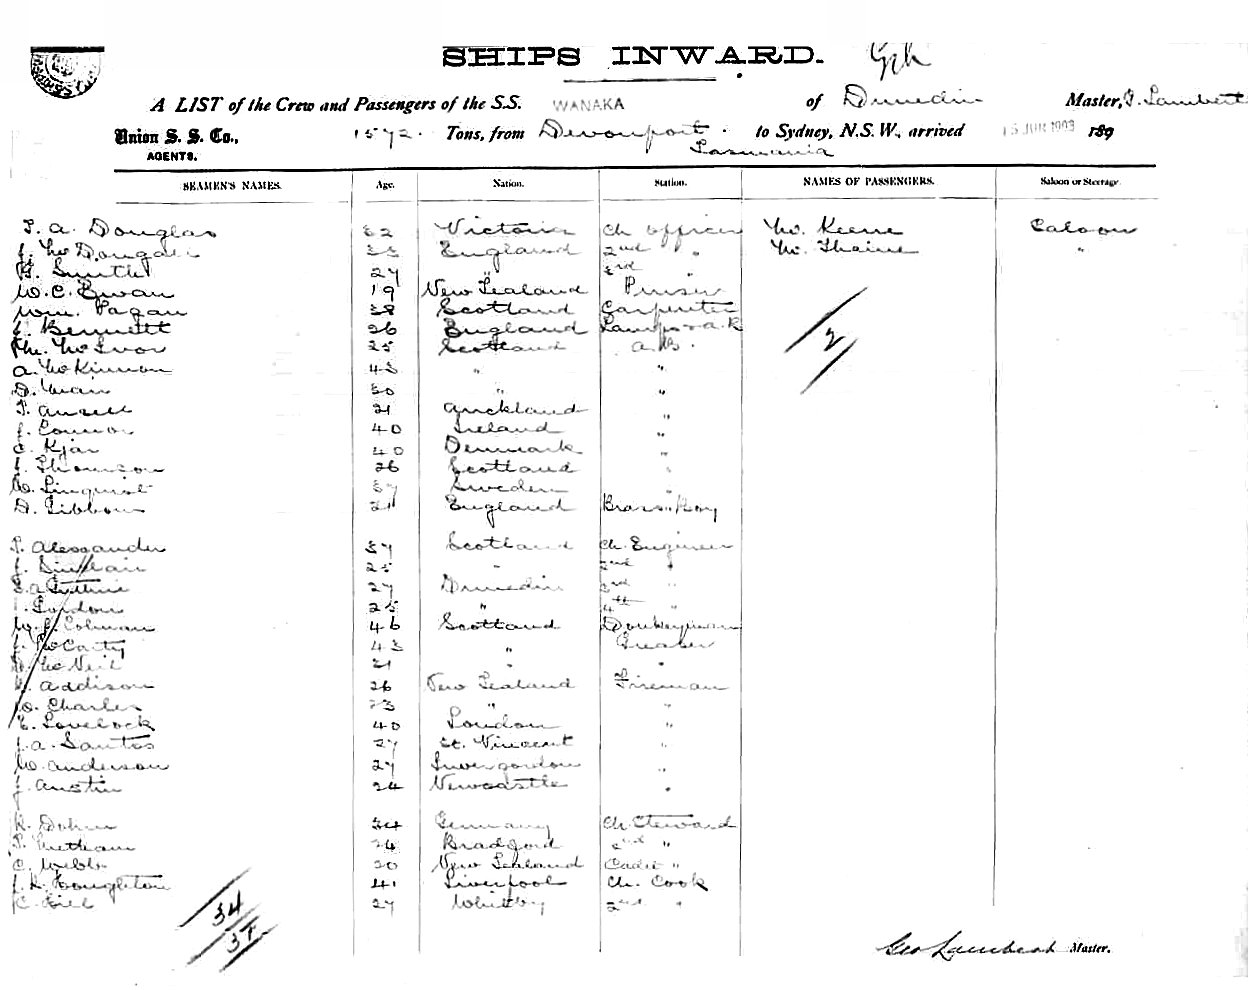 SHIPS INWARD.
A LIST of the Crew and Passengers of the S.S. WANAKA of Dunedin Master, G. Lambert
Union S. S. Co., AGENTS. 1572. Tons, from Devonport Tasmania to Sydney, N.S.W., arrived 15 JUN 1903 189
SEAMEN'S NAMES. Age. Nation. Station. NAMES OF PASSENGERS. Saloon or Steerage
T. A. Douglas 32 Victoria Ch Officer Mr. Keene Saloon
J. McDougall 33 England 2nd " Mr. Thaine "
Smith 27 " 3rd "
W. C. Ewan 19 New Zealand Purser
Wm. Pagan 38 Scotland Carpenter
Bennett 26 England Lamps & A.B
McIvor 25 Scotland A.B.
A. McKinnon 43 " "
D. Main 30 " "
T. Ansell 21 Auckland "
J. Connor 40 Ireland "
C. Kjar 40 Denmark "
J. Thomson 26 Scotland "
Linquist 37 Sweden "
D. Gibbons 21 England Brass Boy
Alessander 37 Scotland Ch. Engineer
J. Sinclair 25 " 2nd "
Guthrie 27 Dunedin 3rd "
Gordon 25 " 4th "
W. J. Colman 46 Scotland Donkeyman
J. McCarty 43 " Greaser
McNeil 21 " "
Addison 26 New Zealand Fireman
Charles 23 " "
E. Lovelock 40 London "
J. A. Santos 27 St. Vincent "
W. Anderson 27 Invergordon "
J. Austin 24 Newcastle "
Dohrn 34 Germany Ch Steward
Metham 24 Bradford 2nd "
C. Webb 20 New Zealand Cadet "
Houghton 41 Liverpool Ch. Cook
C. 27 Whitby 2nd "
2
34
37
Geo Lambert Master.